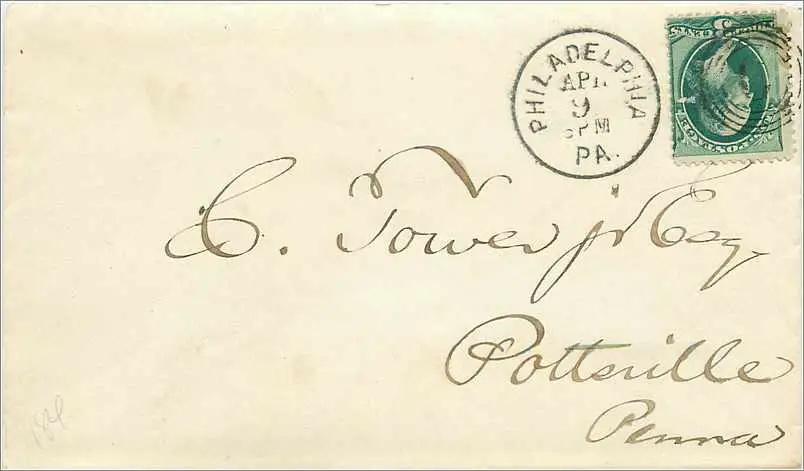 PHILADELPHIA
APR
9
PM
PA.
C. Tower jr Esq.
Pottsville
Penna